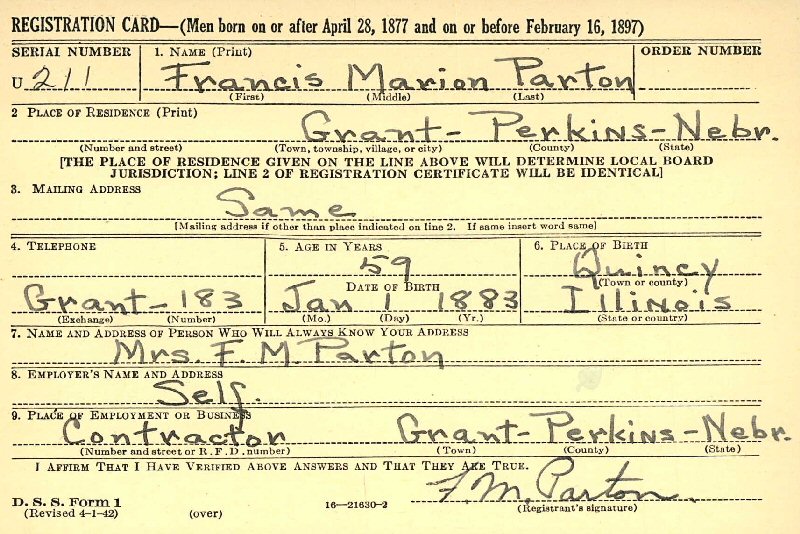 REGISTRATION CARD—(Men born on or after April 28, 1877 and on or before February 16, 1897)
SERIAL NUMBER 1. NAME (Print) ORDER NUMBER
U 211 Francis Marion Parton
(First) (Middle) (Last)
2 PLACE OF RESIDENCE (Print)
Grant- Perkins-Nebr.
(Number and street) (Town, township, village, or city) (County) (State)
[THE PLACE OF RESIDENCE GIVEN ON THE LINE ABOVE WILL DETERMINE LOCAL BOARD
JURISDICTION; LINE 2 OF REGISTRATION CERTIFICATE WILL BE IDENTICAL]
3. MAILING ADDRESS
Same
[Mailing address if other than place indicated on line 2. If same insert word same]
4. TELEPHONE 5. AGE IN YEARS 6. PLACE OF BIRTH
59 Quincy
DATE OF BIRTH (Town or county)
Grant-183 Jan 1 1883 Illinois
(Exchange) (Number) (Mo.) (Day) (Yr.) (State or country)
7. NAME AND ADDRESS OF PERSON WHO WILL ALWAYS KNOW YOUR ADDRESS
Mrs. F. M. Parton
8. EMPLOYER'S NAME AND ADDRESS
Self.
9. PLACE OF EMPLOYMENT OR BUSINESS
Contractor Grant-Perkins-Nebr.
(Number and street or R. F. D. number) (Town) (County) (State)
I AFFIRM THAT I HAVE VERIFIED ABOVE ANSWERS AND THAT THEY ARE TRUE.
F. M. Parton.
D. S. S. Form 1 16—21630-2 (Registrant's signature)
(Revised 4-1-42) (over)